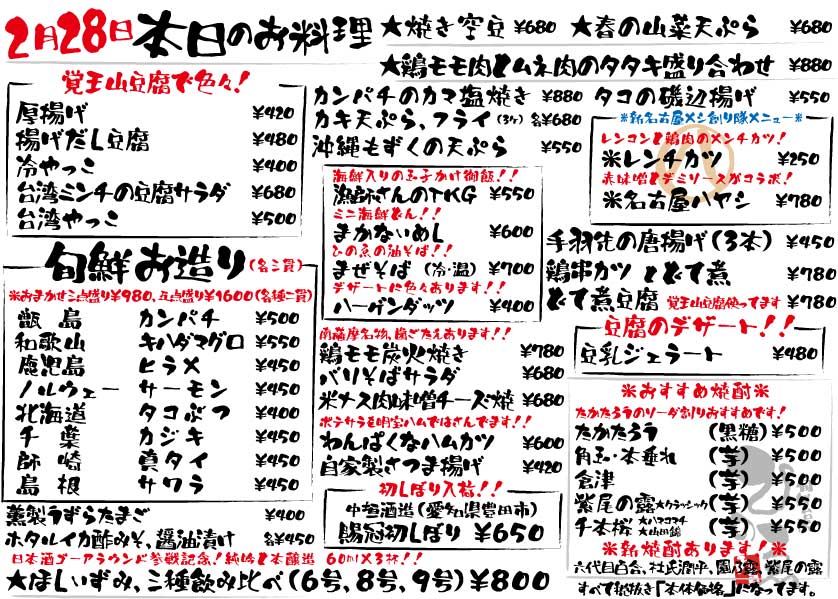 2月28日 本日のお料理
★焼き空豆 ¥680 ★春の山菜天ぷら ¥680
★鶏モモ肉とムネ肉のタタキ盛り合わせ ¥880
覚王山豆腐で色々!
厚揚げ ¥420
揚げだし豆腐 ¥480
冷やっこ ¥400
台湾ミンチの豆腐サラダ ¥680
台湾やっこ ¥500
カンパチのカマ塩焼き ¥880 タコの磯辺揚げ ¥550
カキ天ぷら、フライ(3ケ) 各¥680
沖縄もずくの天ぷら ¥550
※新名古屋メシ創り隊メニュー※
レンコンと鶏肉のメンチカツ!
※レンチカツ ¥250
赤味噌とデミソースがコラボ!
※名古屋ハヤシ ¥780
海鮮入りの玉子かけ御飯!!
漁師さんのTKG ¥550
ミニ海鮮どん!!
まかないめし ¥600
ひの魚の油そば!!
まぜそば (冷・温) ¥700
デザートに色々あります!!
ハーゲンダッツ ¥400
手羽先の唐揚げ(3本) ¥450
鶏串カツ とどて煮 ¥780
どて煮豆腐 覚王山豆腐使ってます ¥780
豆腐のデザート!!
豆乳ジェラート ¥480
旬鮮お造り (各二貫)
※おまかせ三点盛り¥980、五点盛り¥1600(各種二貫)
甑島 カンパチ ¥500
和歌山 キハダマグロ ¥550
鹿児島 ヒラメ ¥450
ノルウェー サーモン ¥450
北海道 タコぶつ ¥400
千葉 カジキ ¥450
師崎 真タイ ¥450
島根 サワラ ¥450
南薩摩名物、歯ごたえあります!!
鶏モモ炭火焼き ¥780
バリそばサラダ ¥680
米ナス肉味噌チーズ焼 ¥680
ポテサラを明宝ハムではさんでます!!
わんぱくなハムカツ ¥600
自家製さつま揚げ ¥420
初しぼり入荷!!
中垣酒造(愛知県豊田市)
賜冠初しぼり ¥650
※おすすめ焼酎※
たかたろうのソーダ割りおすすめです!
たかたろう (黒糖) ¥500
角玉・本垂れ (芋) ¥500
倉津 (芋) ¥500
紫尾の露★クラッシック (芋) ¥550
千本桜 ★ハマコマチ ★山田錦 (芋) ¥550
※新焼酎あります!※
六代目百合、杜氏潤平、園乃露、紫尾の露
すべて税抜き「本体価格」になってます。
薫製うずらたまご ¥400
ホタルイカ酢みそ、醤油漬け 各¥450
日本酒ゴーアラウンド参戦記念!純吟と本醸造 60ml×3杯!!
★ほしいずみ、三種飲み比べ(6号、8号、9号)¥800